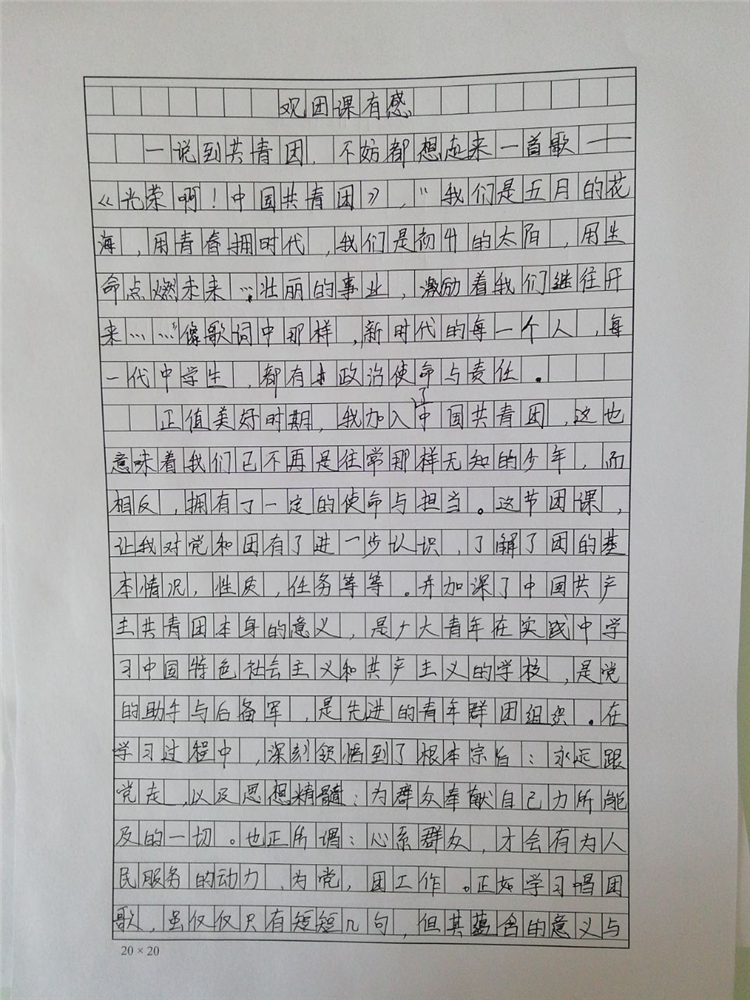 观团课有感
一说到共青团，不妨都想起来一首歌——
《光荣啊！中国共青团》，"我们是五月的花
海，用青春拥时代，我们是初升的太阳，用生
命点燃未来…壮丽的事业，激励着我们继往开
来……"像歌词中那样，新时代的每一个人，每
一代中学生，都有政治使命与责任。
正值美好时期，我加入了中国共青团，这也
意味着我们已不再是往常那样无知的少年，而
相反，拥有了一定的使命与担当。这节团课，
让我对党和团有了进一步认识，了解了团的基
本情况，性质，任务等等。并加深了中国共产
主共青团本身的意义，是广大青年在实践中学
习中国特色社会主义和共产主义的学校，是党
的助手与后备军，是先进的青年群团组织。在
学习过程中，深刻领悟到了根本宗旨：永远跟
党走，以及思想精髓：为群众奉献自己力所能
及的一切。也正所谓：心系群众，才会有为人
民服务的动力，为党，团工作。正如学习唱团
歌，虽仅仅只有短短几句，但其蕴含的意义与
20×20